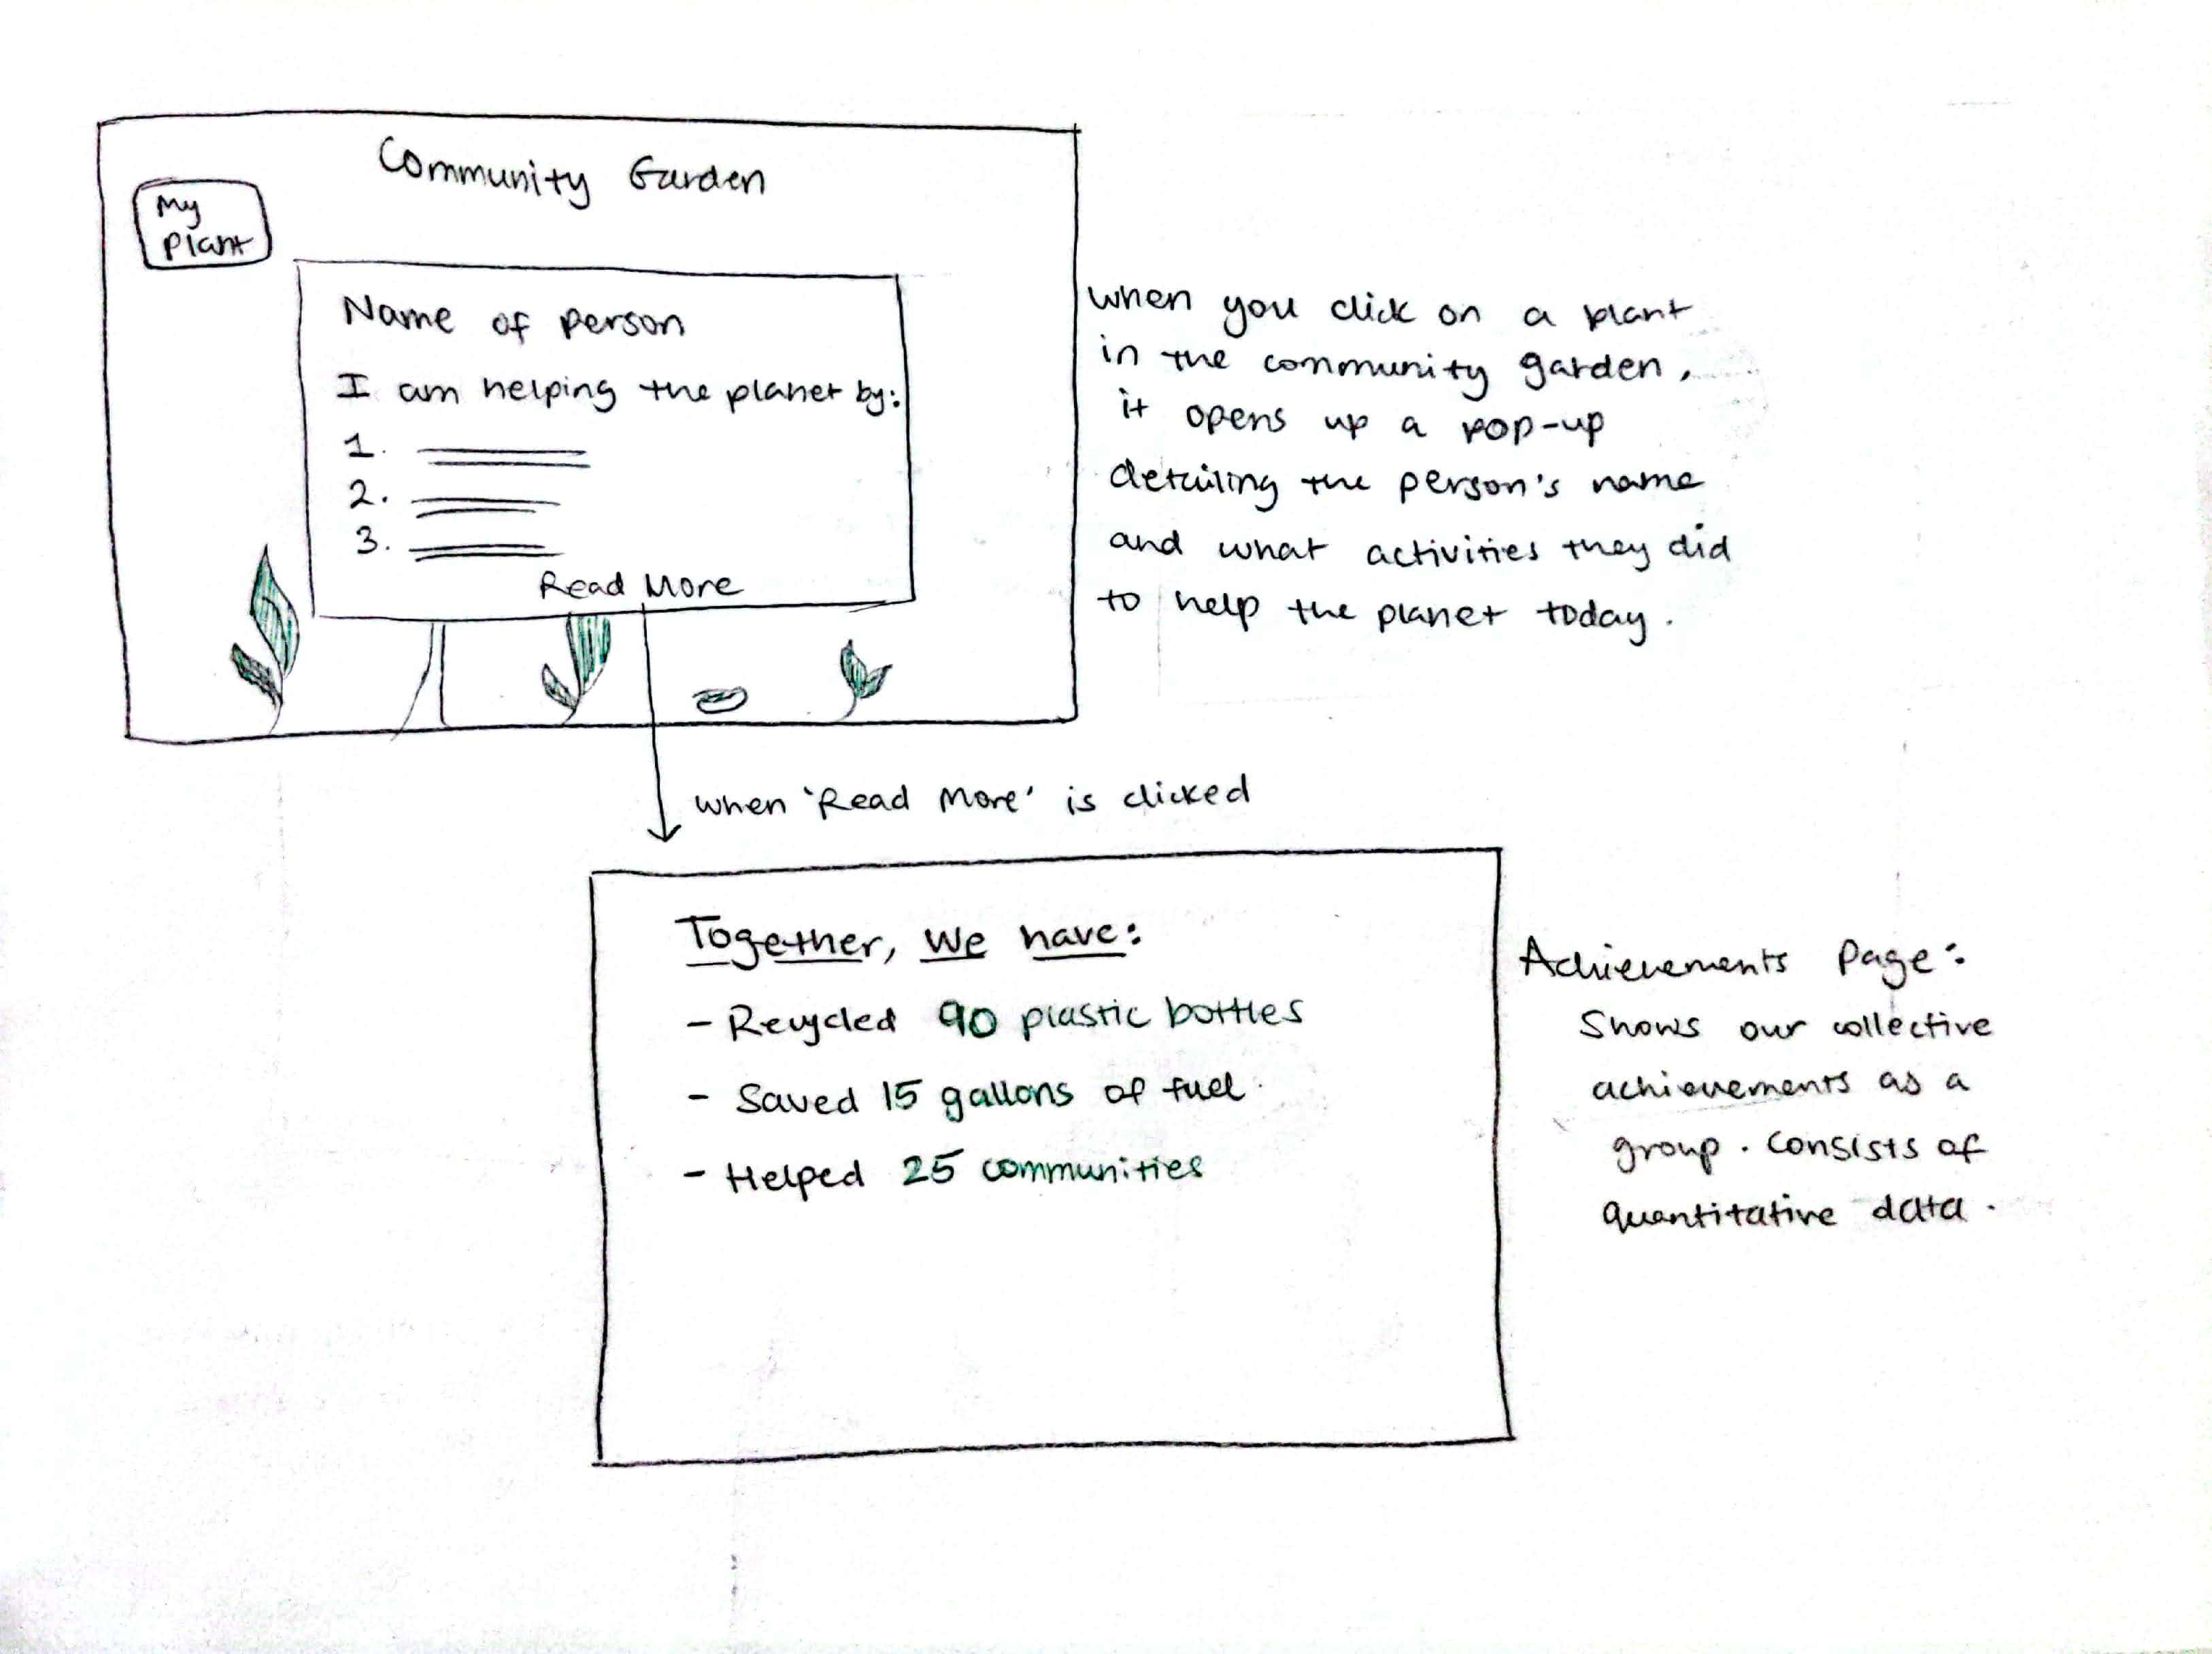 Community Garden
My
Plant
Name of person
I am helping the planet by:
1.
2.
3.
Read More
when you click on a plant
in the community garden,
it opens up a pop-up
detailing the person's name
and what activities they did
to help the planet today.
when 'Read More' is clicked
Together, we have:
- Recycled 90 plastic bottles
- Saved 15 gallons of fuel
- Helped 25 communities
Achievements Page:
Shows our collective
achievements as a
group. consists of
quantitative data.